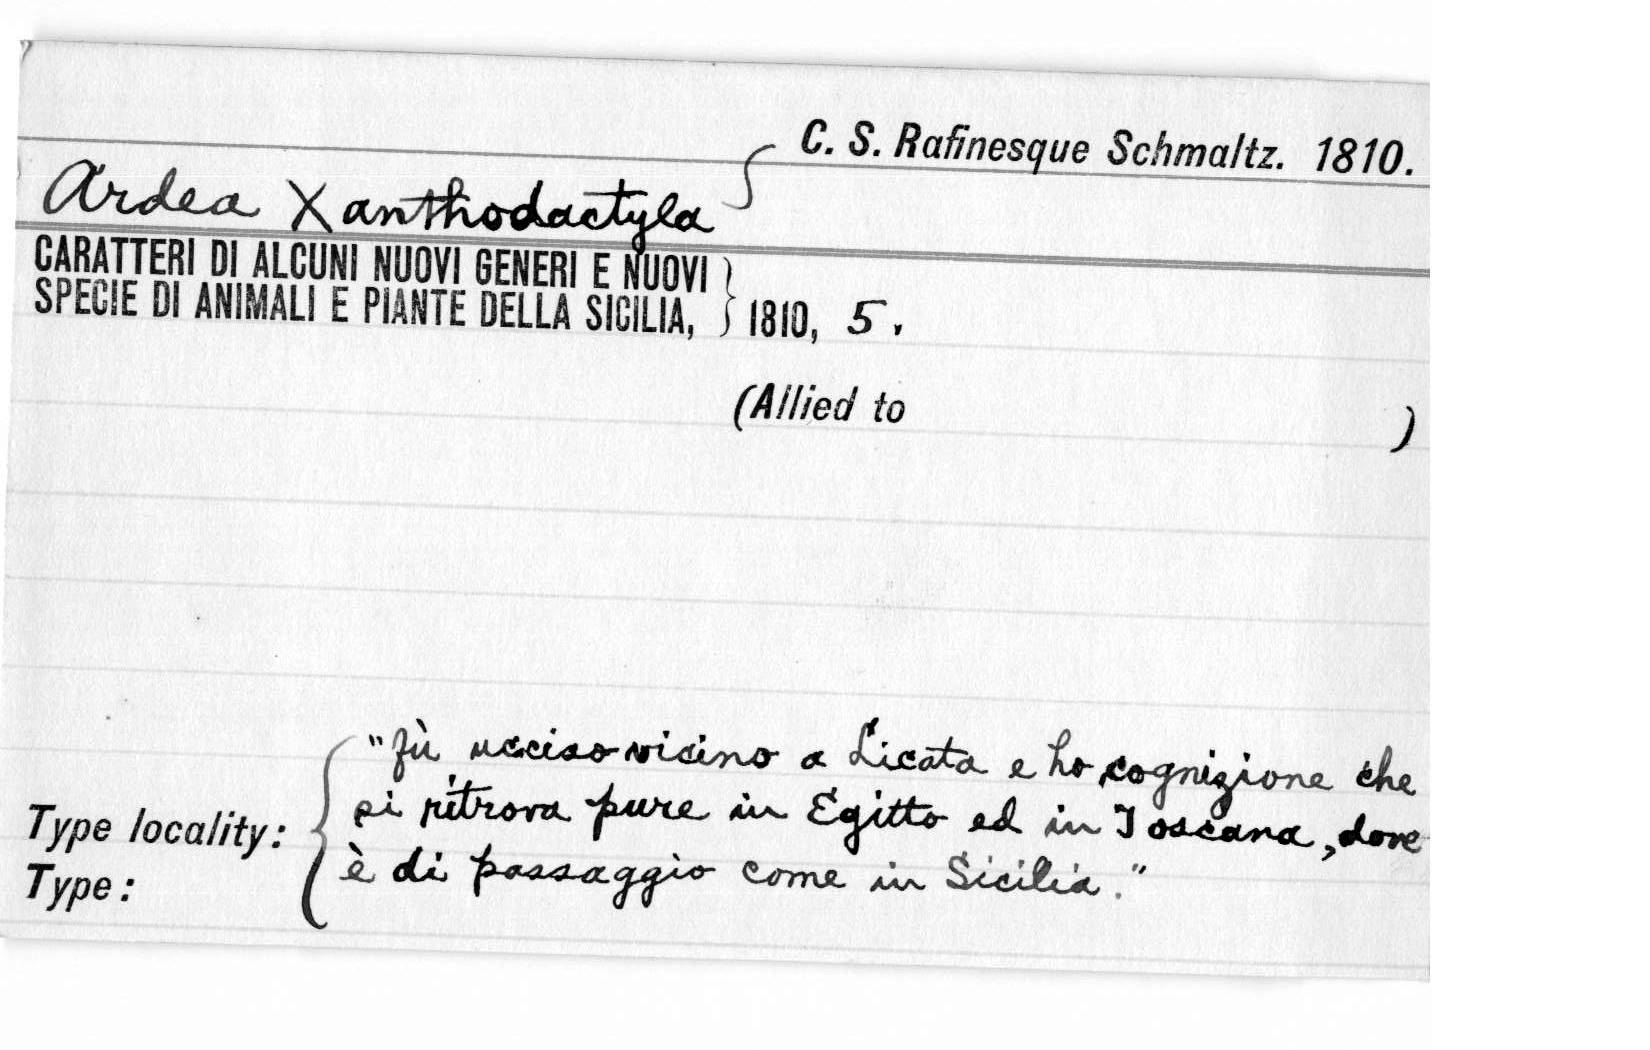 C. S. Rafinesque Schmaltz. 1810.
Ardea Xanthodactyla
CARATTERI DI ALCUNI NUOVI GENERI E NUOVI
SPECIE DI ANIMALI E PIANTE DELLA SICILIA, 1810, 5.
(Allied to )
"fù ucciso vicino a Licata e ho cognizione che
si ritrova pure in Egitto ed in Toscana, dove
Type locality:
è di passaggio come in Sicilia."
Type: